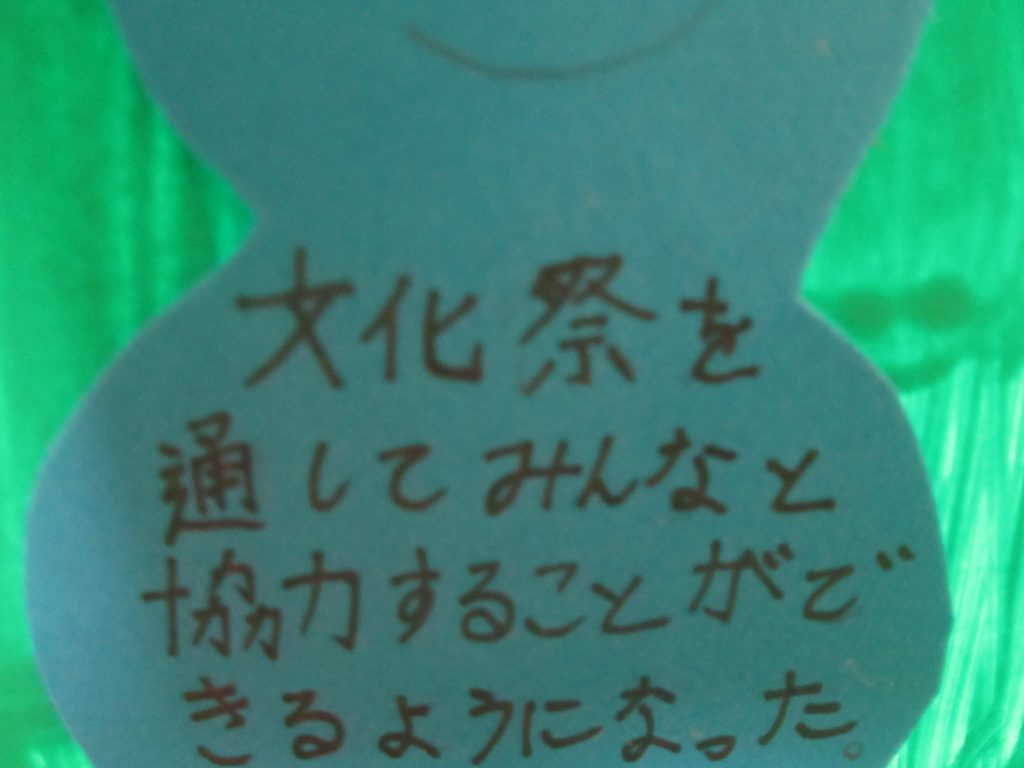 文化祭を
通してみんなと
協力することがで
きるようになった。